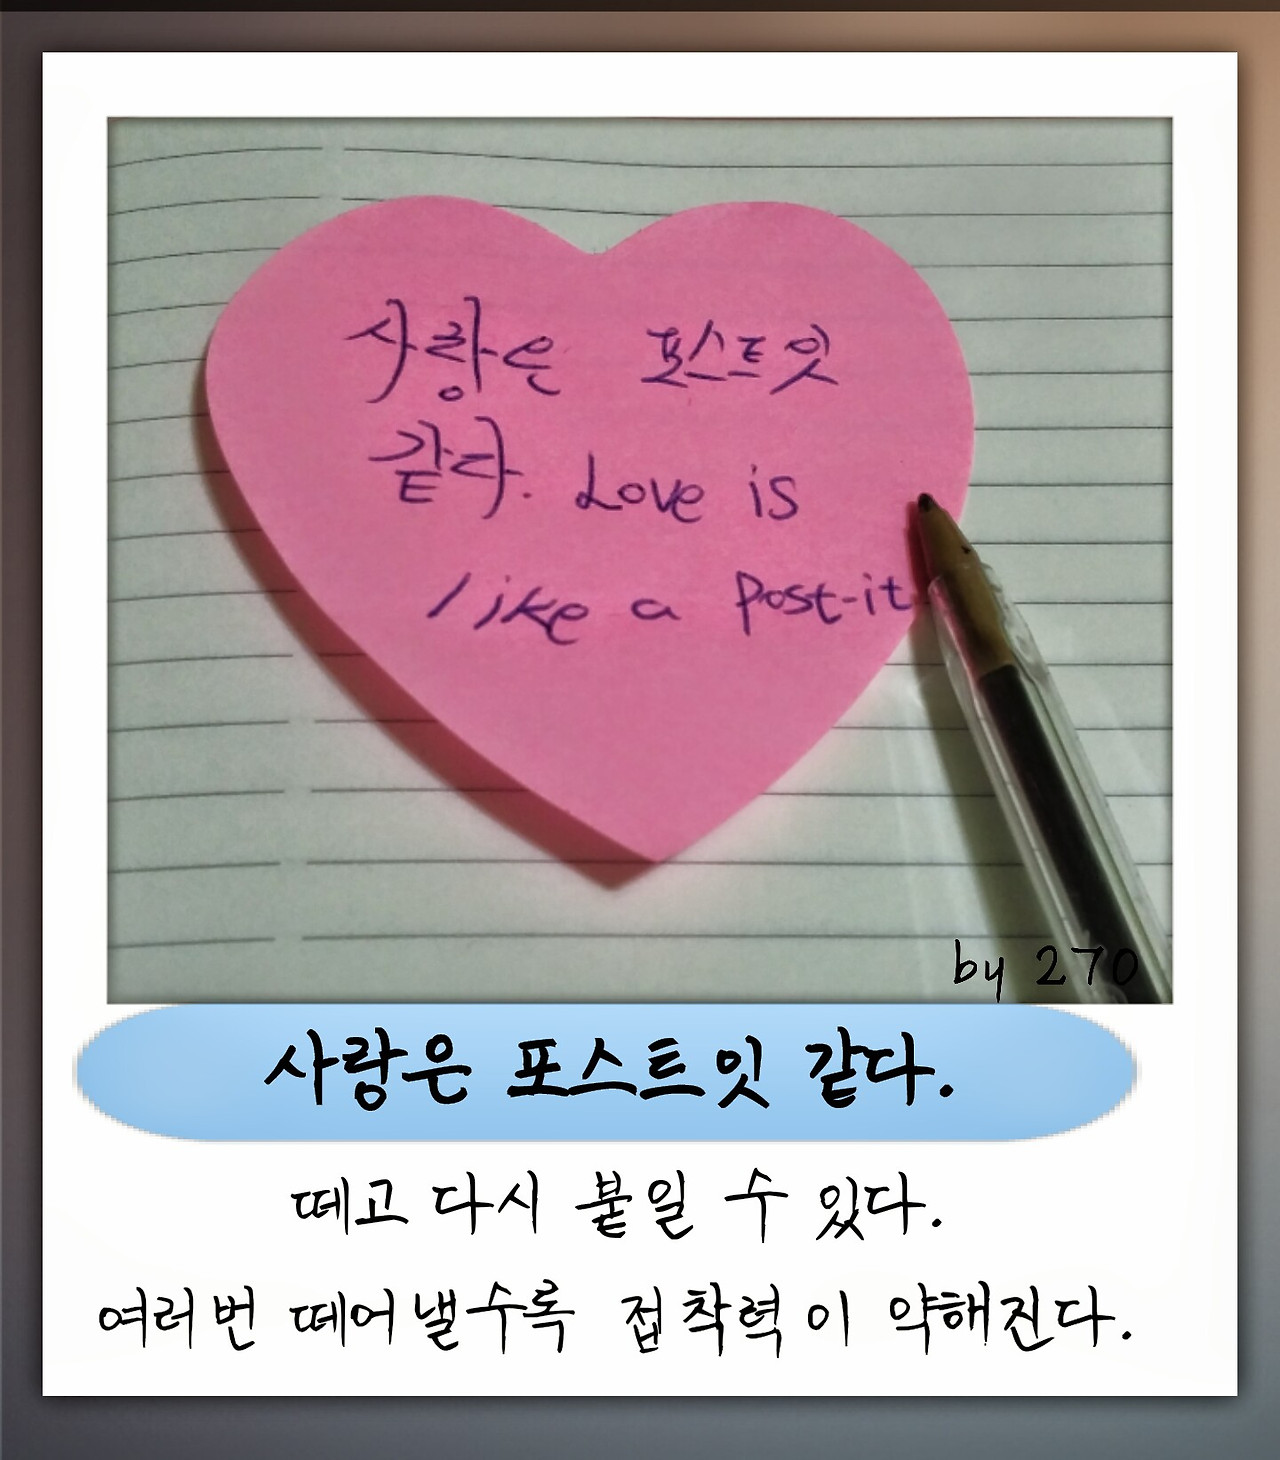 사랑은 포스트잇
같다. Love is
like a post-it
by 270
사랑은 포스트잇 같다.
떼고 다시 붙일 수 있다.
여러번 떼어낼수록 접착력이 약해진다.